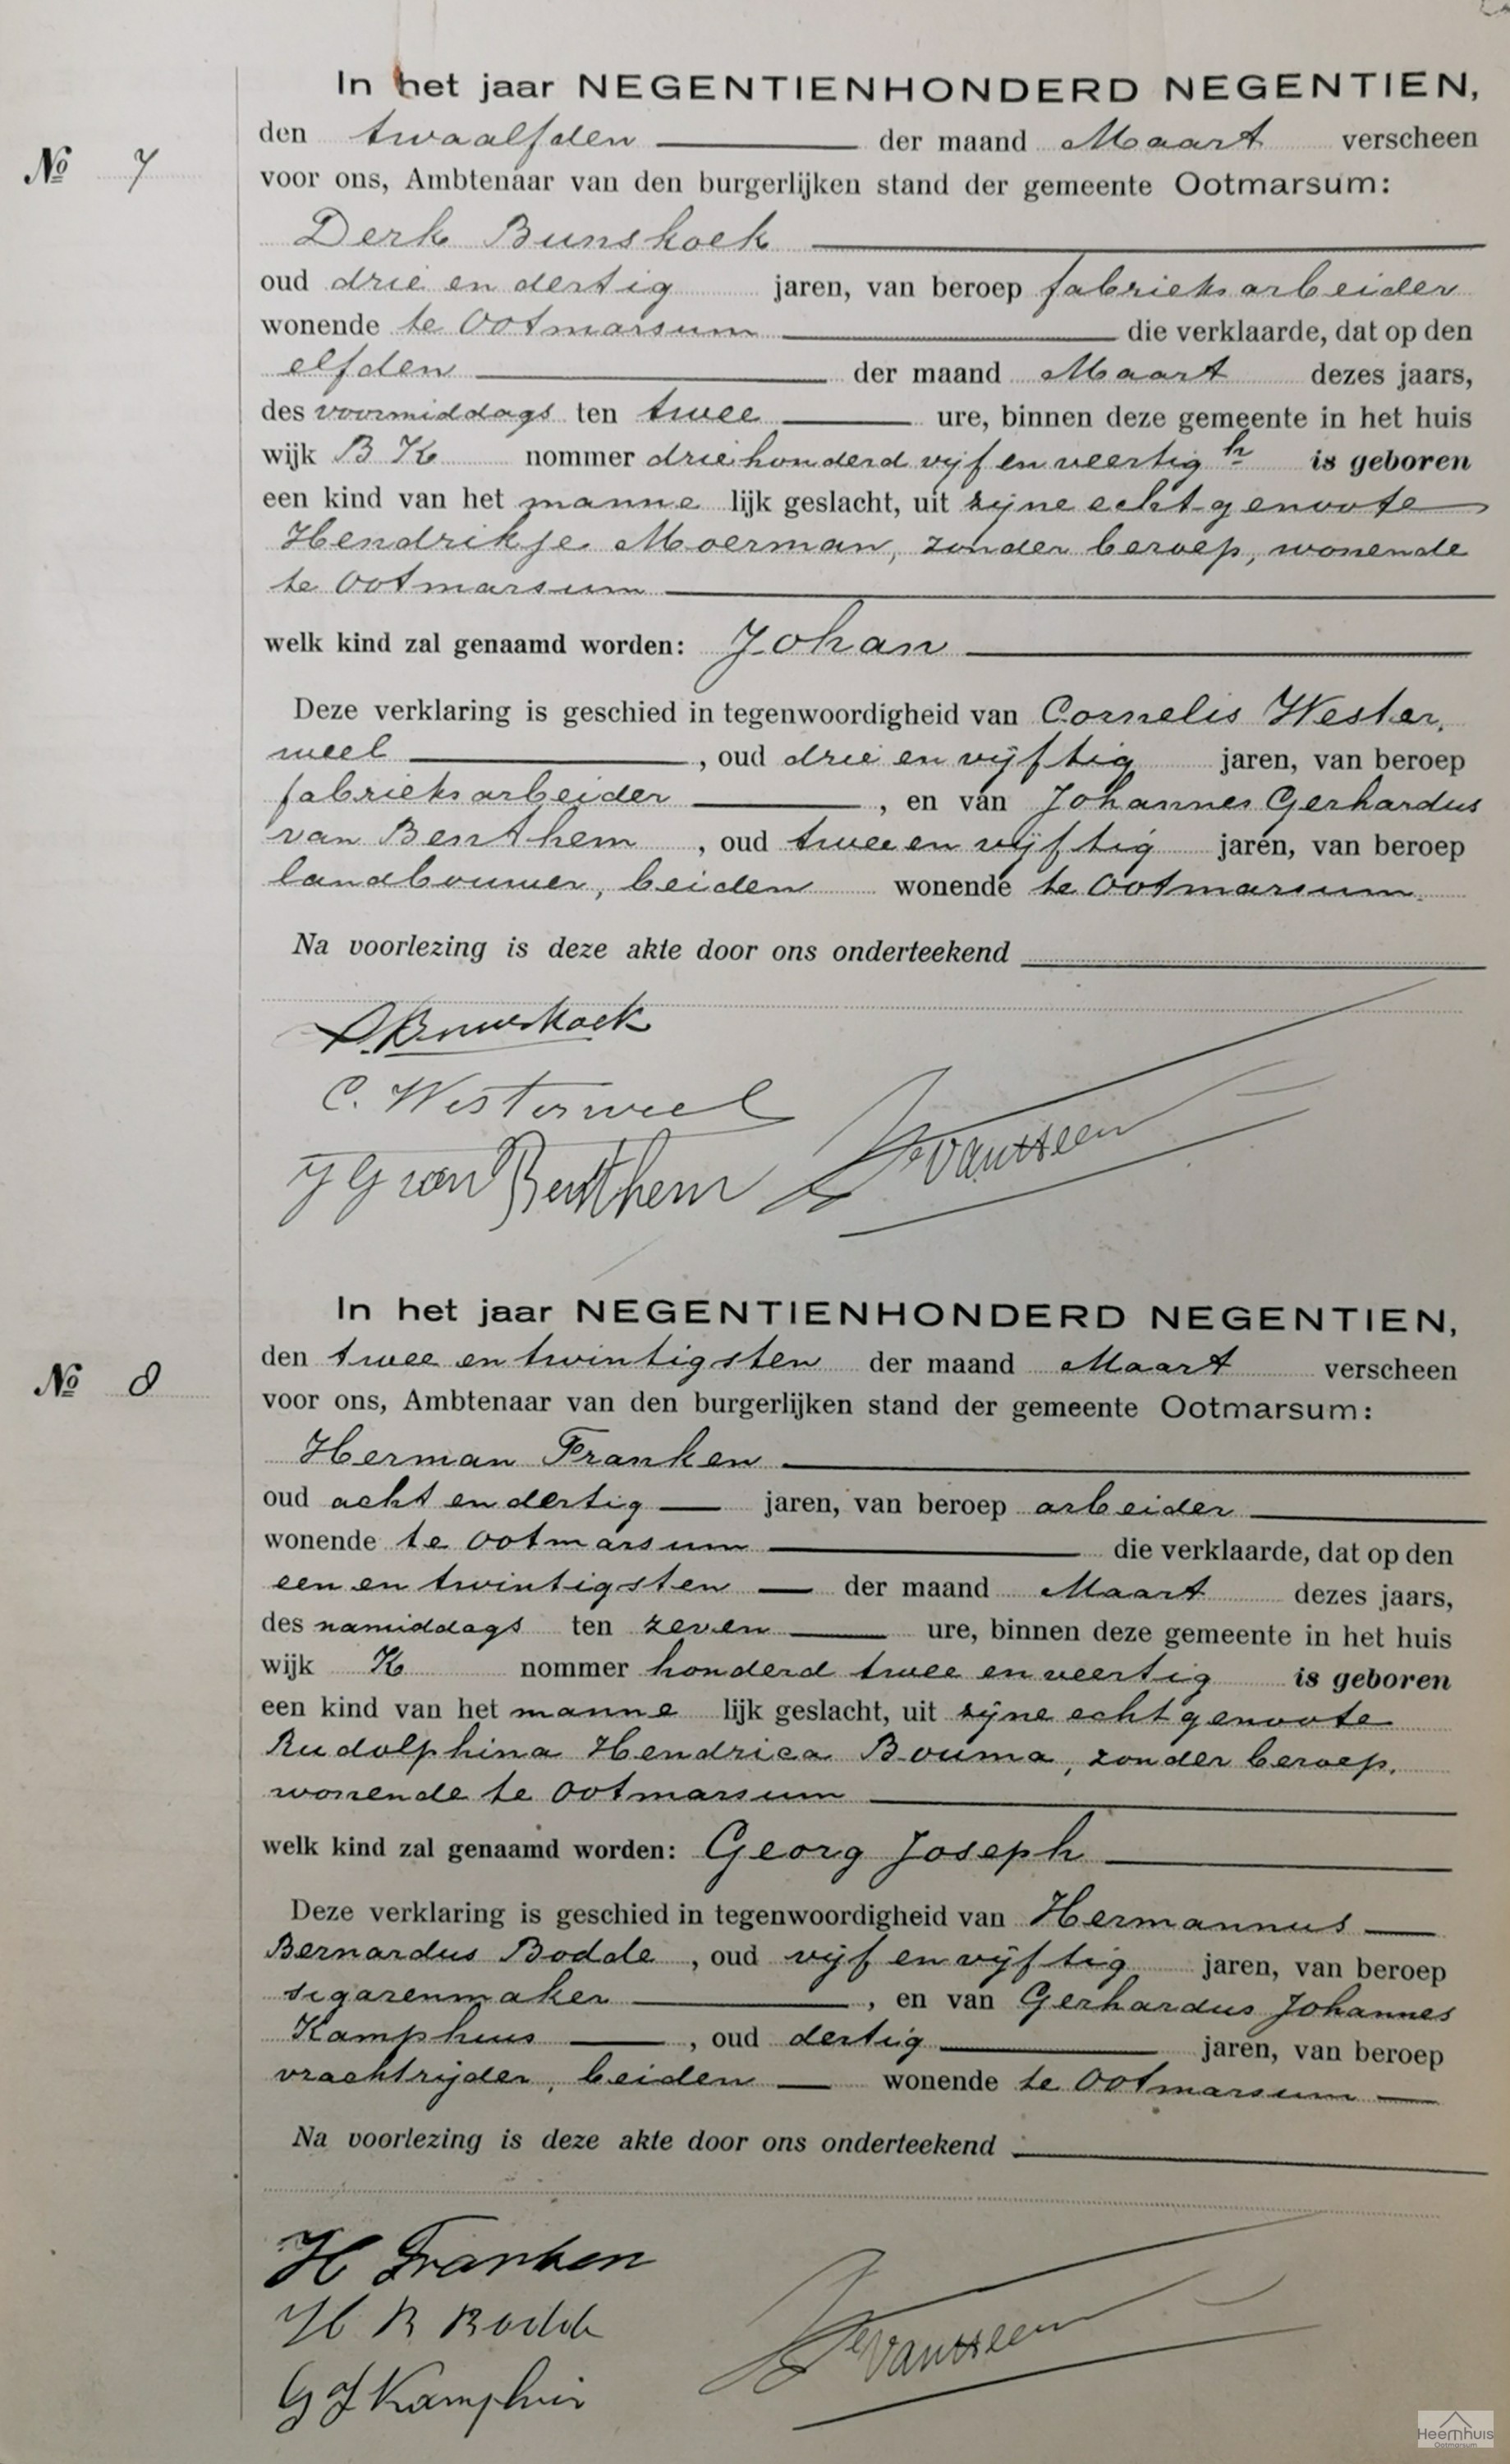 In het jaar NEGENTIENHONDERD NEGENTIEN,
den twaalfden der maand Maart verscheen
No 7
voor ons, Ambtenaar van den burgerlijken stand der gemeente Ootmarsum:
Derk Bunskoek
oud drie en dertig jaren, van beroep fabrieksarbeider
wonende te Ootmarsum die verklaarde, dat op den
elfden der maand Maart dezes jaars,
des voormiddags ten twee ure, binnen deze gemeente in het huis
wijk B K nommer driehonderd vijf en veertig is geboren
een kind van het manne lijk geslacht, uit zijne echtgenoote
Hendrikje Moerman, zonder beroep, wonende
te Ootmarsum
welk kind zal genaamd worden: Johan
Deze verklaring is geschied in tegenwoordigheid van Cornelis Wester,
weel , oud drie en vijftig jaren, van beroep
fabrieksarbeider , en van Johannes Gerhardus
van Benthem , oud twee en vijftig jaren, van beroep
landbouwer, beiden wonende te Ootmarsum.
Na voorlezing is deze akte door ons onderteekend
D. Bunskoek
C. Westerweel
J G van Benthem
In het jaar NEGENTIENHONDERD NEGENTIEN,
den twee en twintigsten der maand Maart verscheen
No 8
voor ons, Ambtenaar van den burgerlijken stand der gemeente Ootmarsum:
Herman Franken
oud acht en dertig jaren, van beroep arbeider
wonende te Ootmarsum die verklaarde, dat op den
een en twintigsten der maand Maart dezes jaars,
des namiddags ten zeven ure, binnen deze gemeente in het huis
wijk K nommer honderd twee en veertig is geboren
een kind van het manne lijk geslacht, uit zijne echtgenoote
Rudolphina Hendrica Bouma, zonder beroep,
wonende te Ootmarsum
welk kind zal genaamd worden: Georg Joseph
Deze verklaring is geschied in tegenwoordigheid van Hermannus
Bernardus Bodde , oud vijf en vijftig jaren, van beroep
sigarenmaker , en van Gerhardus Johannes
Kamphuis , oud dertig jaren, van beroep
vrachtrijder, beiden wonende te Ootmarsum
Na voorlezing is deze akte door ons onderteekend
H Franken
H B Bodde
G J Kamphuis
Heemhuis
Ootmarsum